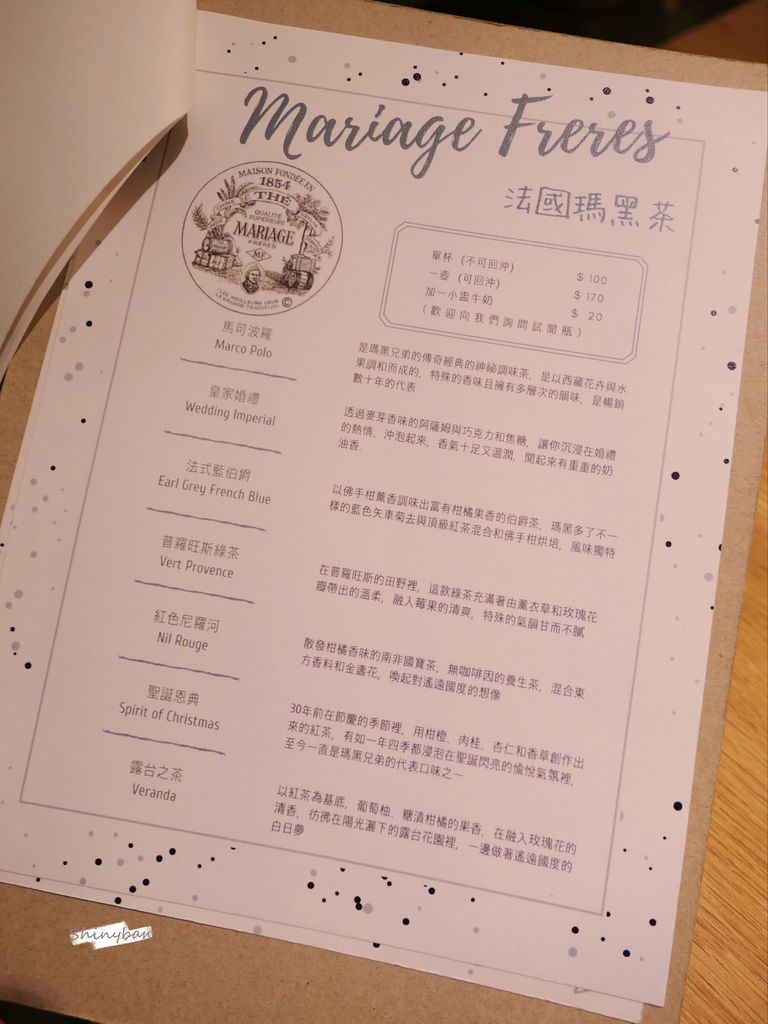 Mariage Freres
法國瑪黑茶
MAISON FONDÉE EN
1854
THÉ
QUALITÉ
SUPÉRIEURE
MARIAGE
FRÈRES
MF
"LES MEILLEURS CRUS
LA GRANDE TRADITION"
©
單杯 (不可回沖) $ 100
一壺 (可回沖) $ 170
加一小盅牛奶 $ 20
(歡迎向我們詢問試聞瓶)
馬可波羅
Marco Polo
是瑪黑兄弟的傳奇經典的神祕調味茶, 是以西藏花卉與水
果調和而成的, 特殊的香味且擁有多層次的韻味, 是暢銷
數十年的代表
皇家婚禮
Wedding Imperial
透過麥芽香味的阿薩姆與巧克力和焦糖, 讓你沉浸在婚禮
的熱情, 沖泡起來, 香氣十足又溫潤, 聞起來有重重的奶
油香,
法式藍伯爵
Earl Grey French Blue
以佛手柑薰香調味出富有柑橘果香的伯爵茶, 瑪黑多了不一
樣的藍色矢車菊去與頂級紅茶混合和佛手柑烘培, 風味獨特
普羅旺斯綠茶
Vert Provence
在普羅旺斯的田野裡, 這款綠茶充滿著由薰衣草和玫瑰花
瓣帶出的溫柔, 融入莓果的清爽, 特殊的氣韻甘而不膩
紅色尼羅河
Nil Rouge
散發柑橘香味的南非國寶茶, 無咖啡因的養生茶, 混合東
方香料和金盞花, 喚起對遙遠國度的想像
聖誕恩典
Spirit of Christmas
30年前在節慶的季節裡, 用柑橙、肉桂、杏仁和香草創作出
來的紅茶, 有如一年四季都浸泡在聖誕閃亮的愉悅氣氛裡,
至今一直是瑪黑兄弟的代表口味之一
露台之茶
Veranda
以紅茶為基底, 葡萄柚、糖漬柑橘的果香, 在融入玫瑰花的
清香, 彷彿在陽光灑下的露台花園裡, 一邊做著遙遠國度的
白日夢
shinyban